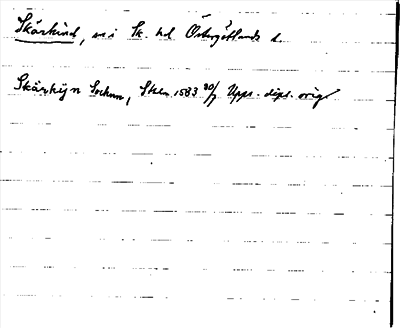 Skärkind, sn i Sk. hd Östergötlands l.
Skärkijn Sochnn, Sthlm 1583 30/7 Upps. dipl. orig